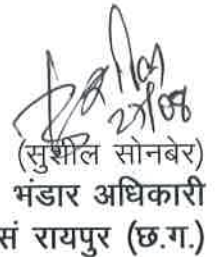 27/08
(सुशील सोनबेर)
भंडार अधिकारी
सं रायपुर (छ.ग.)